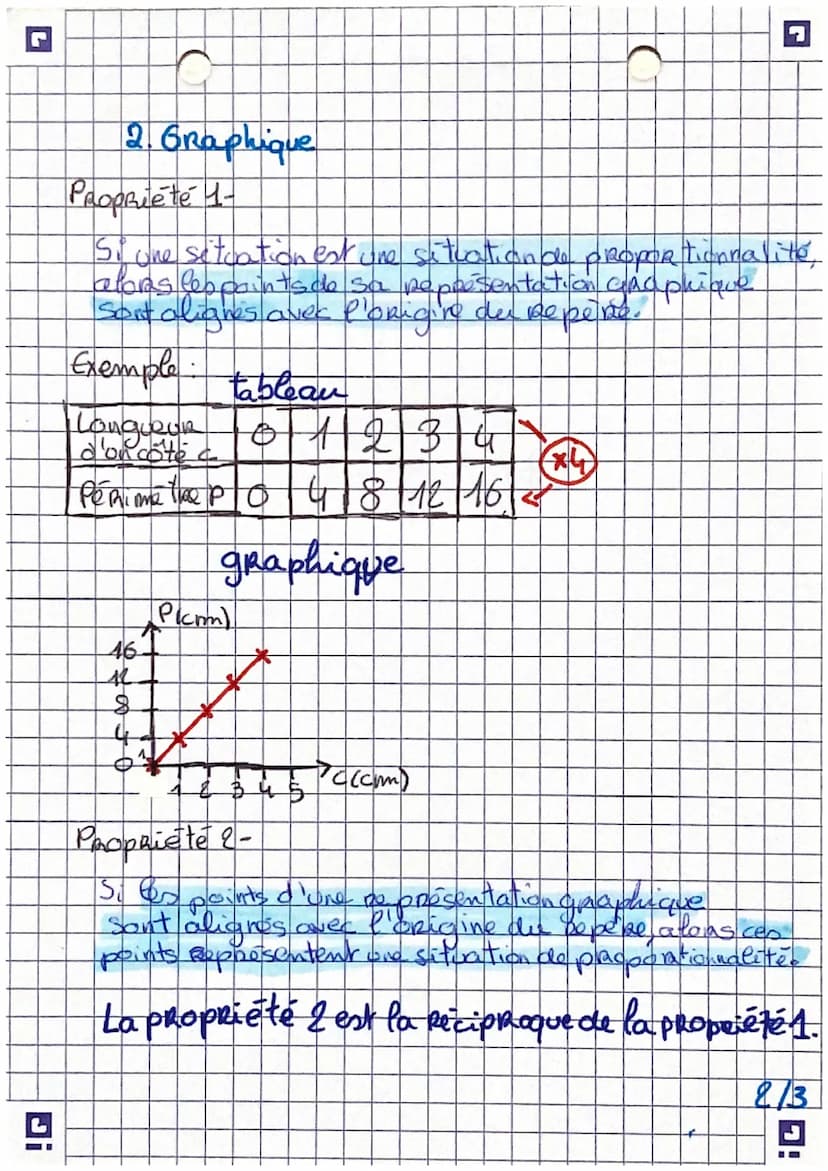 2. Graphique
Propriété 1-
Si une situation est une situation de proportionnalité,
alors les points de sa représentation graphique
sont alignés avec l'origine du repère.
Exemple :
tableau
Longueur d'un côté c 0 1 2 3 4
Périmètre P 0 4 8 12 16
×4
graphique
P(cm)
16
12
8
4
0
1 2 3 4 5 C(cm)
Propriété 2-
Si les points d'une représentation graphique
sont alignés avec l'origine du repère, alors ces
points représentent une situation de proportionnalité.
La propriété 2 est la réciproque de la propriété 1.
2/3